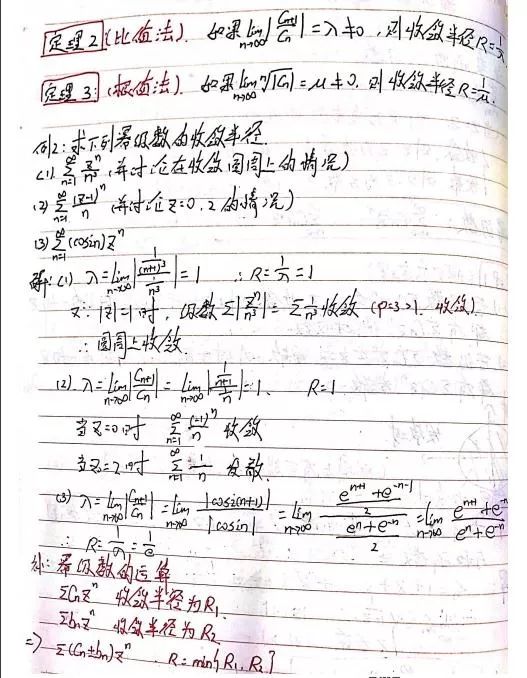 定理2 (比值法). 如果 lim_{n→∞} |C_{n+1}/C_n| = λ ≠ 0, 则收敛半径 R = 1/λ
定理3: (根值法). 如果 lim_{n→∞} ⁿ√|C_n| = μ ≠ 0. 则收敛半径 R = 1/μ.
例2: 求下列幂级数的收敛半径.
(1) ∑_{n=1}^{∞} zⁿ/n³ (并讨论在收敛圆周上的情况)
(2) ∑_{n=1}^{∞} (z-1)ⁿ/n (并讨论z=0, 2的情况)
(3) ∑_{n=1}^{∞} (cosin) zⁿ
解: (1) λ = lim_{n→∞} |(1/(n+1)³)/(1/n³)| = 1 ∴ R = 1/λ = 1
又∵ |z|=1时, 级数∑|zⁿ/n³| = ∑1/n³ 收敛 (p=3>1. 收敛).
∴ 圆周上收敛.
(2). λ = lim_{n→∞} |C_{n+1}/C_n| = lim_{n→∞} |(1/(n+1))/(1/n)| = 1. R=1.
当z=0时 ∑_{n=1}^{∞} (-1)ⁿ/n 收敛
当z=2时 ∑_{n=1}^{∞} 1/n 发散.
(3) λ = lim_{n→∞} |C_{n+1}/C_n| = lim_{n→∞} |cosi(n+1)|/|cosin| = lim_{n→∞} ((e^{n+1}+e^{-n-1})/2)/((eⁿ+e^{-n})/2) = lim_{n→∞} (e^{n+1}+e^{-n
∴ R = 1/λ = 1/e
补: 幂级数的运算
∑C_n zⁿ 收敛半径为R₁.
∑b_n zⁿ 收敛半径为R₂
⇒ ∑(C_n±b_n)zⁿ R = min{R₁, R₂}